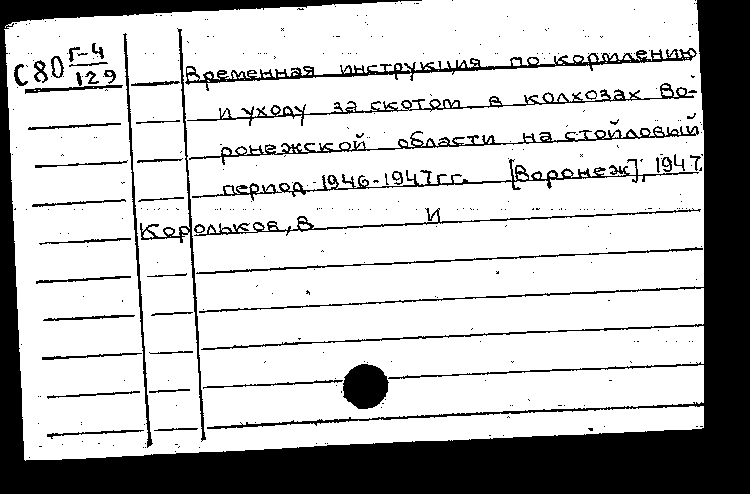 С80 Г-4/129
Временная инструкция по кормлению
и уходу за скотом в колхозах Во-
ронежской области на стойловый
период 1946-1947гг. [Воронеж], 1947
Корольков, В И